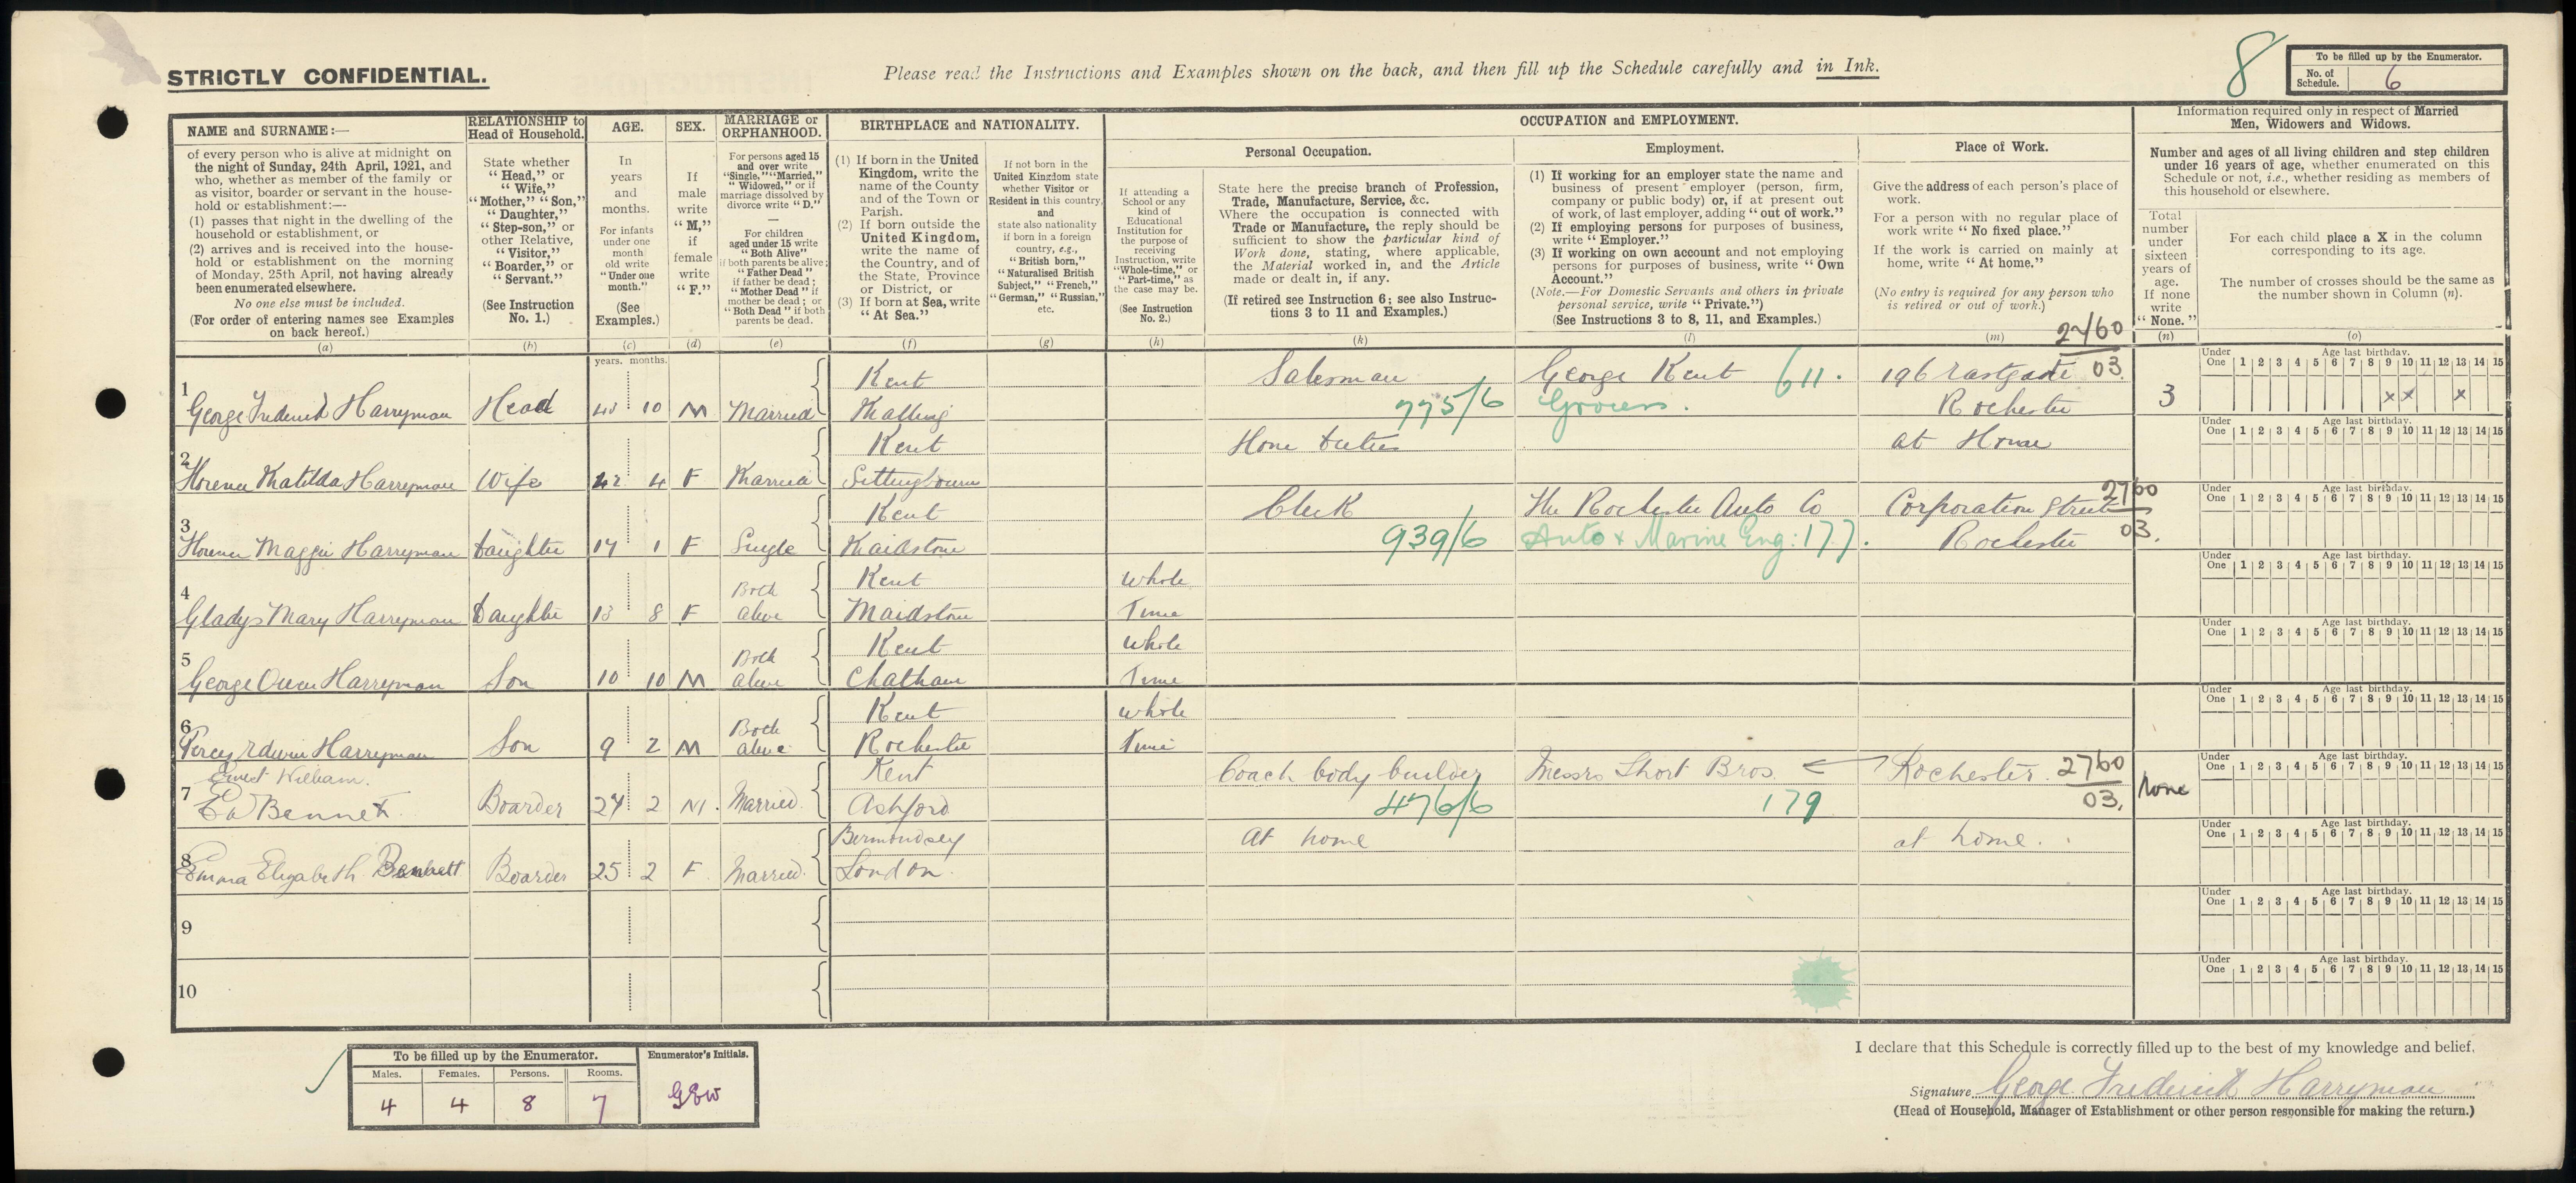 STRICTLY CONFIDENTIAL.
Please read the Instructions and Examples shown on the back, and then fill up the Schedule carefully and in Ink.
8
To be filled up by the Enumerator.
No. of Schedule. 6
NAME and SURNAME:—
of every person who is alive at midnight on
the night of Sunday, 24th April, 1921, and
who, whether as member of the family or
as visitor, boarder or servant in the house-
hold or establishment:—
(1) passes that night in the dwelling of the
household or establishment, or
(2) arrives and is received into the house-
hold or establishment on the morning
of Monday, 25th April, not having already
been enumerated elsewhere.
No one else must be included.
(For order of entering names see Examples
on back hereof.)
(a)
RELATIONSHIP to
Head of Household.
State whether
"Head," or
"Wife,"
"Mother," "Son,"
"Daughter,"
"Step-son," or
other Relative,
"Visitor,"
"Boarder," or
"Servant."
(See Instruction
No. 1.)
(b)
AGE.
In
years
and
months.
For infants
under one
month
old write
"Under one
month."
(See
Examples.)
(c)
SEX.
If
male
write
"M,"
if
female
write
"F."
(d)
MARRIAGE or
ORPHANHOOD.
For persons aged 15
and over write
"Single," "Married,"
"Widowed," or if
marriage dissolved by
divorce write "D."
—
For children
aged under 15 write
"Both Alive"
if both parents be alive;
"Father Dead"
if father be dead;
"Mother Dead" if
mother be dead; or
"Both Dead" if both
parents be dead.
(e)
BIRTHPLACE and NATIONALITY.
(1) If born in the United
Kingdom, write the
name of the County
and of the Town or
Parish.
(2) If born outside the
United Kingdom,
write the name of
the Country, and of
the State, Province
or District, or
(3) If born at Sea, write
"At Sea."
(f)
If not born in the
United Kingdom state
whether Visitor or
Resident in this country,
and
state also nationality
if born in a foreign
country, e.g.,
"British born,"
"Naturalised British
Subject," "French,"
"German," "Russian,"
etc.
(g)
OCCUPATION and EMPLOYMENT.
If attending a
School or any
kind of
Educational
Institution for
the purpose of
receiving
Instruction, write
"Whole-time," or
"Part-time," as
the case may be.
(See Instruction
No. 2.)
(h)
Personal Occupation.
State here the precise branch of Profession,
Trade, Manufacture, Service, &c.
Where the occupation is connected with
Trade or Manufacture, the reply should be
sufficient to show the particular kind of
Work done, stating, where applicable,
the Material worked in, and the Article
made or dealt in, if any.
(If retired see Instruction 6; see also Instruc-
tions 3 to 11 and Examples.)
(k)
Employment.
(1) If working for an employer state the name and
business of present employer (person, firm,
company or public body) or, if at present out
of work, of last employer, adding "out of work."
(2) If employing persons for purposes of business,
write "Employer."
(3) If working on own account and not employing
persons for purposes of business, write "Own
Account."
(Note.—For Domestic Servants and others in private
personal service, write "Private.")
(See Instructions 3 to 8, 11, and Examples.)
(l)
Place of Work.
Give the address of each person's place of
work.
For a person with no regular place of
work write "No fixed place."
If the work is carried on mainly at
home, write "At home."
(No entry is required for any person who
is retired or out of work.)
(m)
Information required only in respect of Married
Men, Widowers and Widows.
Number and ages of all living children and step children
under 16 years of age, whether enumerated on this
Schedule or not, i.e., whether residing as members of
this household or elsewhere.
Total
number
under
sixteen
years of
age.
If none
write
"None."
(n)
For each child place a X in the column
corresponding to its age.
The number of crosses should be the same as
the number shown in Column (n).
(o)
years. months.
Under One Age last birthday. 1 2 3 4 5 6 7 8 9 10 11 12 13 14 15
1 George Frederick Harryman Head 10 M Married Kent Malling Salesman 775/6 George Kent 611. Grocers. 196 Eastgate Rochester 2760 03. 3 x x x
Under One Age last birthday. 1 2 3 4 5 6 7 8 9 10 11 12 13 14 15
2 Florence Matilda Harryman Wife 42 4 F Married Kent Sittingbourne Home Duties at Home
Under One Age last birthday. 1 2 3 4 5 6 7 8 9 10 11 12 13 14 15
3 Florence Maggie Harryman Daughter 1 F Single Kent Maidstone Clerk 939/6 The Rochester Auto Co Auto & Marine Eng: 177. Corporation Street Rochester 2760 03.
Under One Age last birthday. 1 2 3 4 5 6 7 8 9 10 11 12 13 14 15
4 Gladys Mary Harryman Daughter 13 8 F Both alive Kent Maidstone Whole Time
Under One Age last birthday. 1 2 3 4 5 6 7 8 9 10 11 12 13 14 15
5 George Owen Harryman Son 10 10 M Both alive Kent Chatham Whole Time
Under One Age last birthday. 1 2 3 4 5 6 7 8 9 10 11 12 13 14 15
6 Percy Edwin Harryman Son 9 2 M Both alive Kent Rochester Whole Time
Under One Age last birthday. 1 2 3 4 5 6 7 8 9 10 11 12 13 14 15
Ernest William.
7 E W Bennett Boarder 24 2 M. Married. Kent Ashford Coach body builder 476/6 Messrs Short Bros. 179 Rochester. 2760 03. None
Under One Age last birthday. 1 2 3 4 5 6 7 8 9 10 11 12 13 14 15
8 Emma Elizabeth Bennett Boarder 25 2 F. Married. Bermondsey London. At home at home.
Under One Age last birthday. 1 2 3 4 5 6 7 8 9 10 11 12 13 14 15
9
Under One Age last birthday. 1 2 3 4 5 6 7 8 9 10 11 12 13 14 15
10
To be filled up by the Enumerator.
Males. Females. Persons. Rooms.
4 4 8 7
Enumerator's Initials.
GEW
I declare that this Schedule is correctly filled up to the best of my knowledge and belief.
Signature George Frederick Harryman
(Head of Household, Manager of Establishment or other person responsible for making the return.)